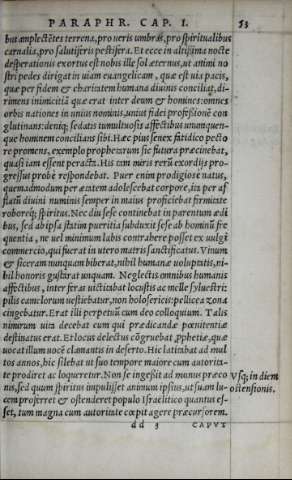 PARAPHR. CAP. I. 53
bus amplectẽtes terrena, pro ueris umbras, pro spiritualibus
carnalia, pro salutiferis pestifera. Et ecce in altissima nocte
desperationis exortus est nobis ille sol æternus, ut animi no
stri pedes dirigat in uiam euangelicam, quæ est uia pacis,
quæ per fidem & charitatem humana diuinis conciliat, di-
rimens inimicitiã quæ erat inter deum & homines: omnes
orbis nationes in unius nominis, unius fidei professiõne con
glutinans: deniq; sedatis tumultuosis affectibus unumquen-
que hominem concilians sibi. Hæc pius senex fatidico pecto
re promens, exemplo prophetarum sic futura præcinebat,
quasi iam essent peracta. His tam miris rerũ exordijs pro-
gressus probè respondebat. Puer enim prodigiose natus,
quemadmodum per ætatem adolescebat corpore, ita per af
flatũ diuini numinis semper in maius proficiebat firmitate
roboreq; spiritus. Nec diu sese continebat in parentum ædi
bus, sed ab ipsa statim pueritia subduxit sese ab hominũ fre
quentia, ne uel minimum labis contrahere posset ex uulgi
commercio, qui fuerat in utero matris sanctificatus. Vinum
& siceram nunquam biberat, nihil humanæ uoluptatis, ni-
hil honoris gustarat unquam. Neglectis omnibus humanis
affectibus, inter feras uictitabat locustis ac melle syluestri:
pilis camelorum uestiebatur, non holosericis: pellicea zona
cingebatur. Erat illi perpetuũ cum deo colloquium. Talis
nimirum uita decebat eum qui prædicandæ pœnitentiæ
destinatus erat. Et locus delectus cõgruebat, pphetiæ, quæ
uocat illum uocẽ clamantis in deserto. Hic latitabat ad mul
tos annos, hic silebat ut suo tempore maiore cum autorita-
te prodiret ac loqueretur. Non se ingessit ad munus præco
nis, sed quum spiritus impulisset animum ipsius, ut suam lu-
cem proferret & ostenderet populo Israelitico quantus es-
set, tum magna cum autoritate cœpit agere præcursorem.
Vsq; in diem
ostensionis.
dd 3 CAPVT